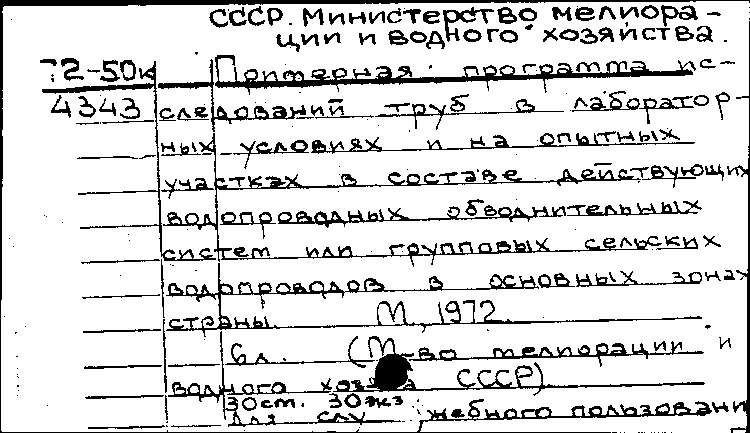 СССР. Министерство мелиора-
ции и водного хозяйства.
72-50к Примерная программа ис-
4343 следований труб в лаборатор-
ных условиях и на опытных
участках в составе действующих
водопроводных обводнительных
систем или групповых сельских
водопроводов в основных зонах
страны. М., 1972.
6л. (М-во мелиорации и
водного СССР).
30ст. 30экз
для слу жебного пользовани